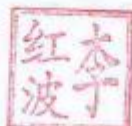 李
红波